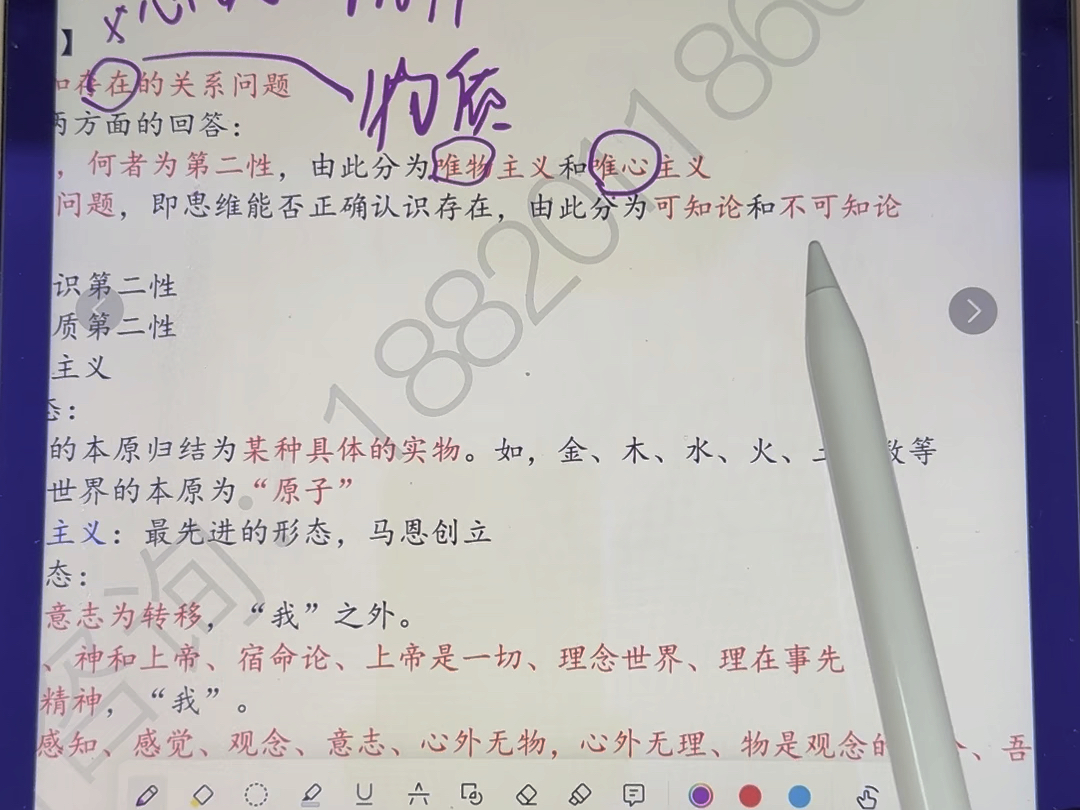 物质
】
和存在的关系问题
两方面的回答：
，何者为第二性，由此分为唯物主义和唯心主义
问题，即思维能否正确认识存在，由此分为可知论和不可知论
识第二性
质第二性
主义
态：
的本原归结为某种具体的实物。如，金、木、水、火、土 数等
世界的本原为“原子”
主义：最先进的形态，马恩创立
态：
意志为转移，“我”之外。
、神和上帝、宿命论、上帝是一切、理念世界、理在事先
精神，“我”。
感知、感觉、观念、意志、心外无物，心外无理、物是观念的 、吾
咨询：188201186